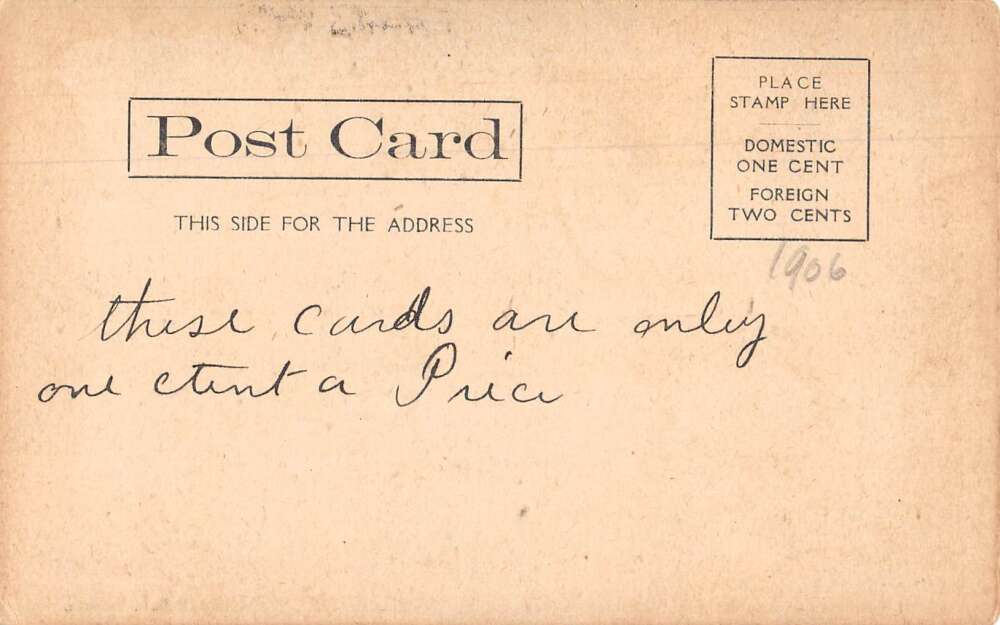 Post Card
THIS SIDE FOR THE ADDRESS
PLACE
STAMP HERE
DOMESTIC
ONE CENT
FOREIGN
TWO CENTS
1906
these cards are only
one ctent a Price